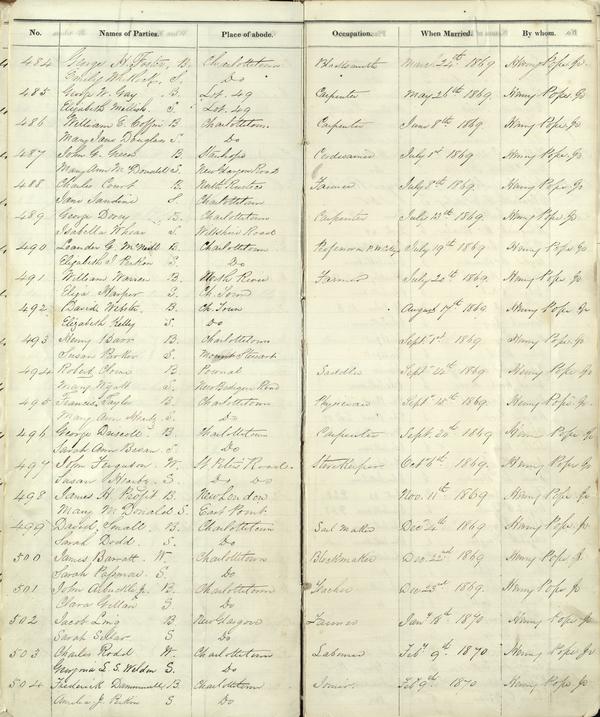 No. Names of Parties. Place of abode. Occupation. When Married. By whom.
484 George H. Foster, B. Charlottetown Blacksmith March 24th 1869 Henry Pope Jr
Emily S. Do
485 George W. Gay B. Lot. 49 Carpenter May 26th 1869 Henry Pope Jr
Elizabeth Mellish S. Lot. 49
486 William C. Coffin B. Charlottetown Carpenter June 8th 1869. Henry Pope Jr
Mary Jane Douglas S. Do
487 John G. Green B. Stanhope July 1st 1869. Henry Pope Jr
Mary Ann McDonald S. New Glasgow Road
488 Charles Court B. North Rustico Farmer July 8th 1869. Henry Pope Jr
Jane S. Charlottetown
489 George B. Charlottetown Carpenter July 13th 1869. Henry Pope Jr
Isabella S. Wiltshire Road
490 Leander G. McNeill B. Charlottetown Professor July 19th 1869 Henry Pope Jr
Elizabeth S. Do
491 William Warren B. North River Farmer July 20th 1869. Henry Pope Jr
Eliza Harper S. Ch. Town
492 David Webster B. Ch. Town August 17th 1869 Henry Pope Jr
Elizabeth Kelly S. Do
493 Henry Barr B. Charlottetown Sept. 1st 1869. Henry Pope Jr
Susan Parker S. Mount Stewart
494 Robert B. Pownal Saddler Henry Pope Jr
Mary Wyatt S. Road
495 Francis Taylor B. Charlottetown Physician 1869. Henry Pope Jr
Mary Ann S. Do
496 George Driscoll B. Charlottetown Carpenter Sept. 1869 Henry Pope Jr
Sarah Ann S. Do
497 John Ferguson W. Road. Storekeeper Octr 6th 1869. Henry Pope Jr
Susan S. Do
498 James H. Profit B. New London Nov. 11th 1869 Henry Pope Jr
Mary McDonald S East Point
499 David Small B. Charlottetown Sail Maker 1869 Henry Pope Jr
Sarah Dodd S. Do
500 James Barratt W. Charlottetown Blockmaker Dec. 22nd 1869 Henry Pope Jr
Sarah S. Do
501 John Arbuckle Jr. B. Charlottetown Teacher 1869. Henry Pope Jr
Clara S Do
502 Jacob B New Glasgow Farmer 1870 Henry Pope Jr
Sarah S Do
503 Charles Rodd W. Charlottetown Labourer Feby 9th 1870 Henry Pope Jr
Georgina S. S. Weldon S. Do
504 Frederick B. Charlottetown Joiner Feby 9th 1870 Henry Pope Jr
Amelia J. S Do